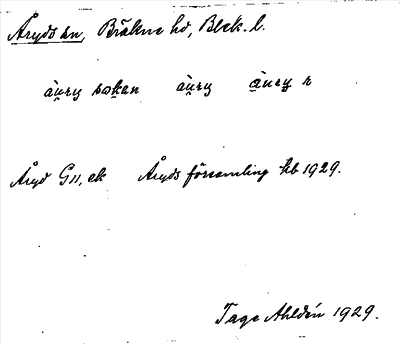 Åryds sn, Bräkne hd, Blek. l.
åu̯ry sokən åu̯ry åu̯ry r
Åryd G11, ek Åryds församling kb 1929.
Tage Ahldén 1929.